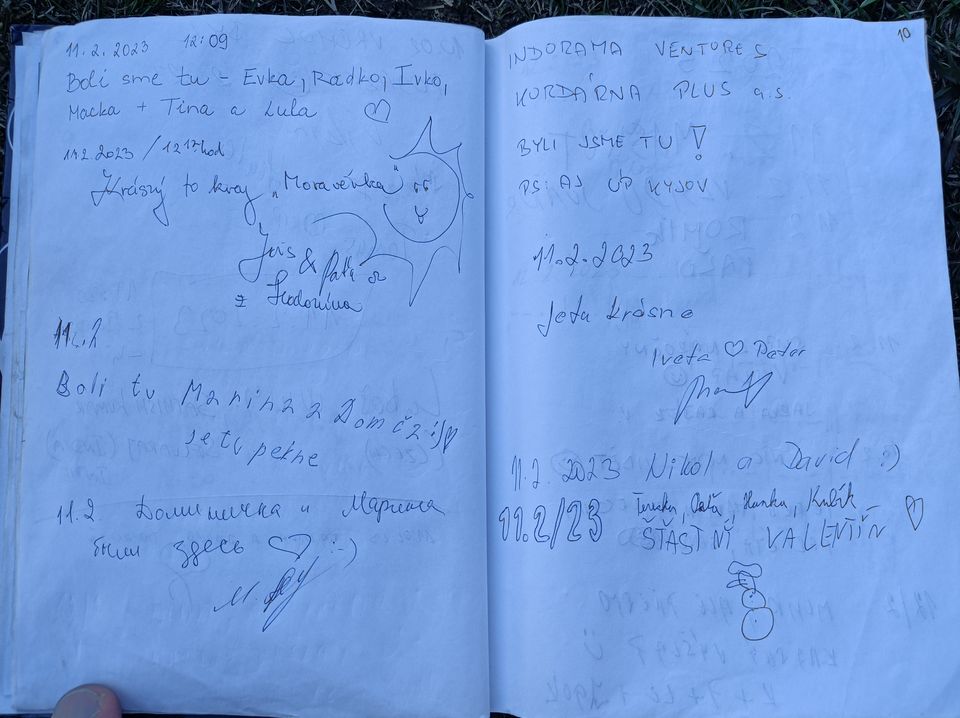 11.2.2023 12:09
Boli sme tu - Evka, Radko, Ivko,
Macka + Tina a Lula
11.2.2023 / 12 17 hod
Krásný to kraj „Moravěnka"
&
z Hodonína
11.2
Boli tu Marina a Dominička :)
Je tu pekne
11.2. Доминичка и Марина
были здесь :-)
10
INDORAMA VENTURES
KORDÁRNA PLUS a.s.
BYLI JSME TU!
PS: AJ ÚP KYJOV
11.2.2023
Jeto krásne
Iveta ♡ Peter
11.2. 2023 Nikol a David :)
11.2/23 Terka, Hanka, Kubík
ŠŤASTNÝ VALENTÝN